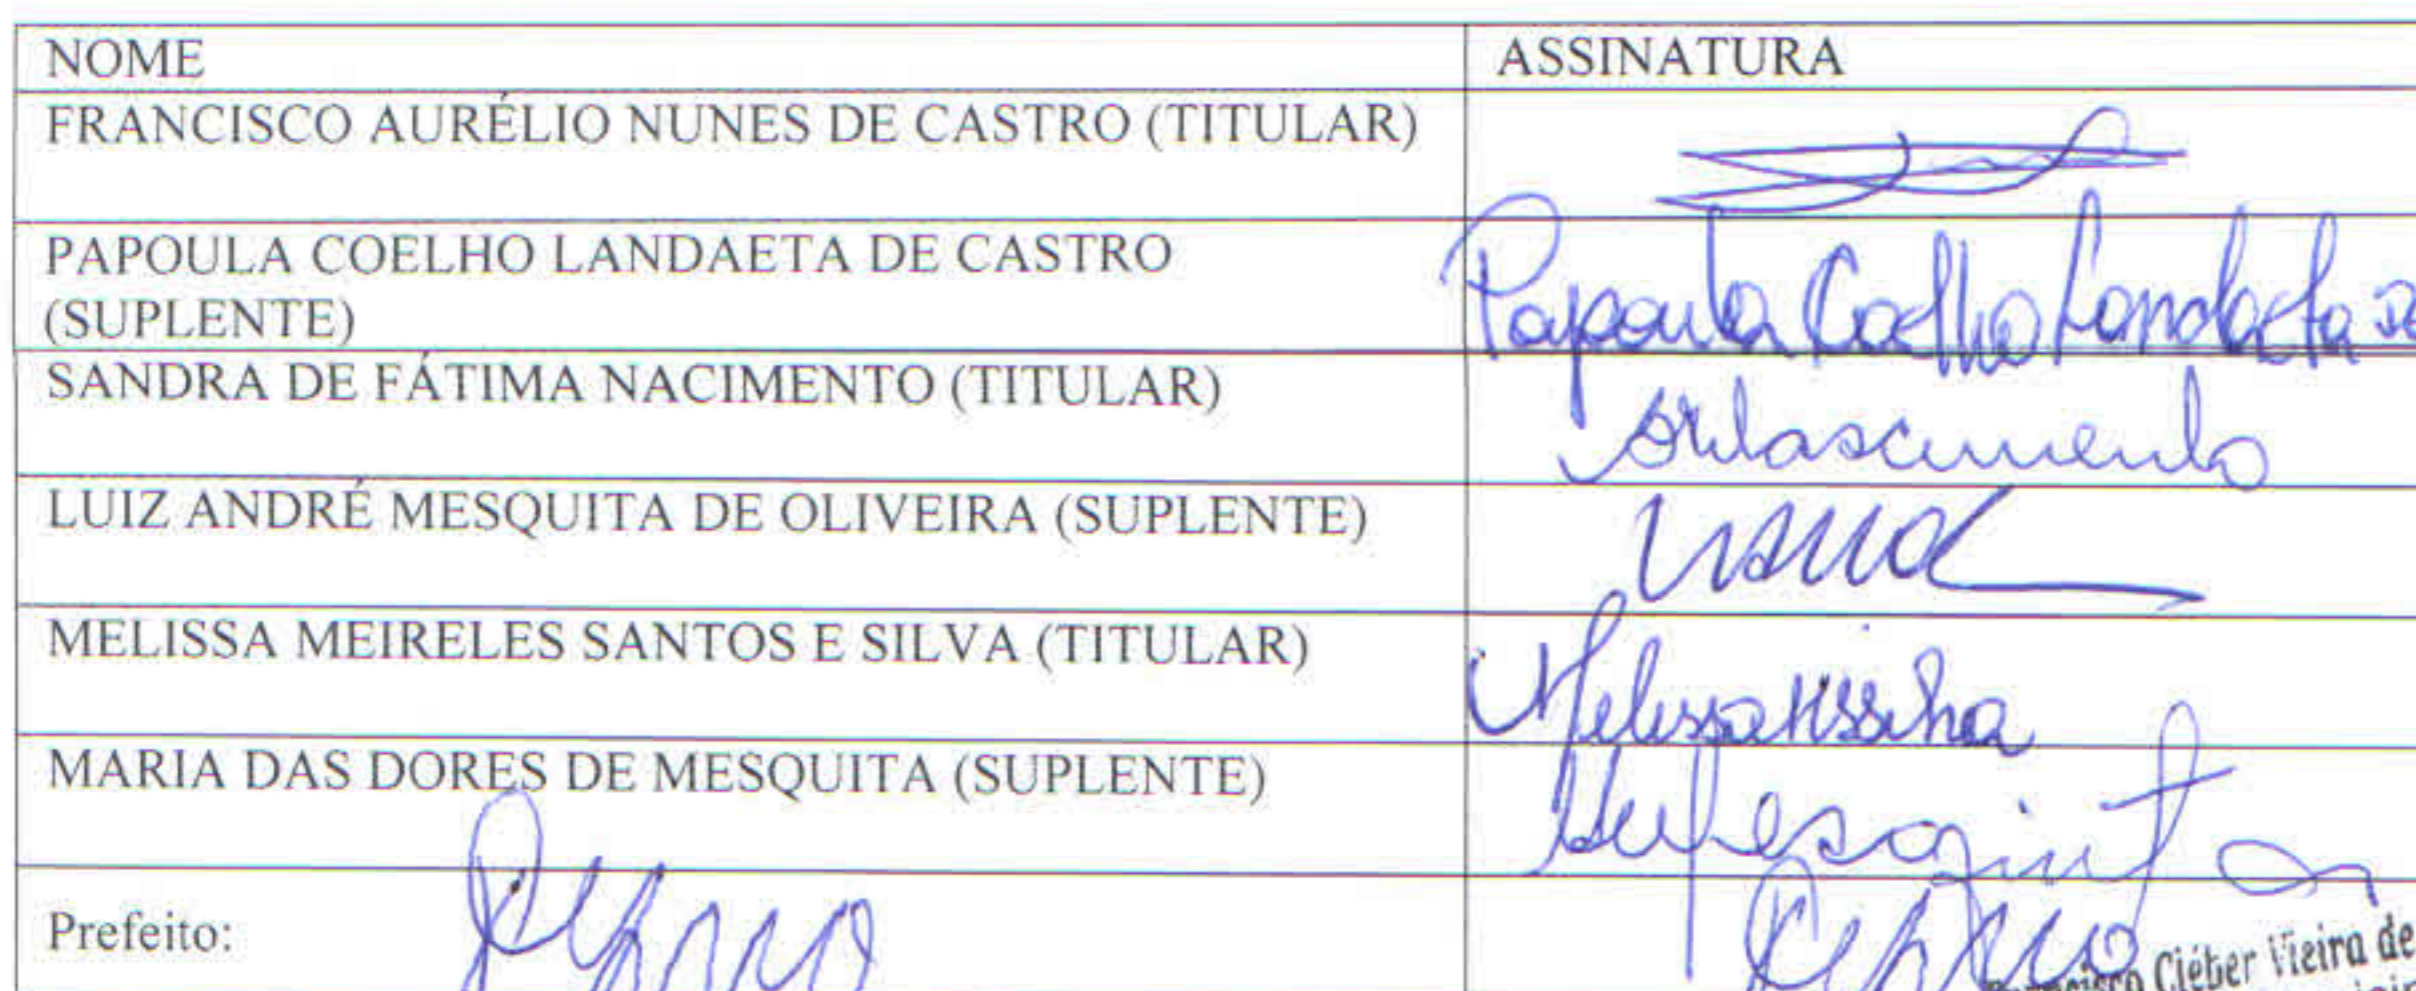 NOME ASSINATURA
FRANCISCO AURÉLIO NUNES DE CASTRO (TITULAR)
PAPOULA COELHO LANDAETA DE CASTRO Papoula Coelho Landaeta De
(SUPLENTE)
SANDRA DE FÁTIMA NACIMENTO (TITULAR)
LUIZ ANDRÉ MESQUITA DE OLIVEIRA (SUPLENTE)
MELISSA MEIRELES SANTOS E SILVA (TITULAR) Melissa
MARIA DAS DORES DE MESQUITA (SUPLENTE)
Prefeito:
Francisco Cléber Vieira de